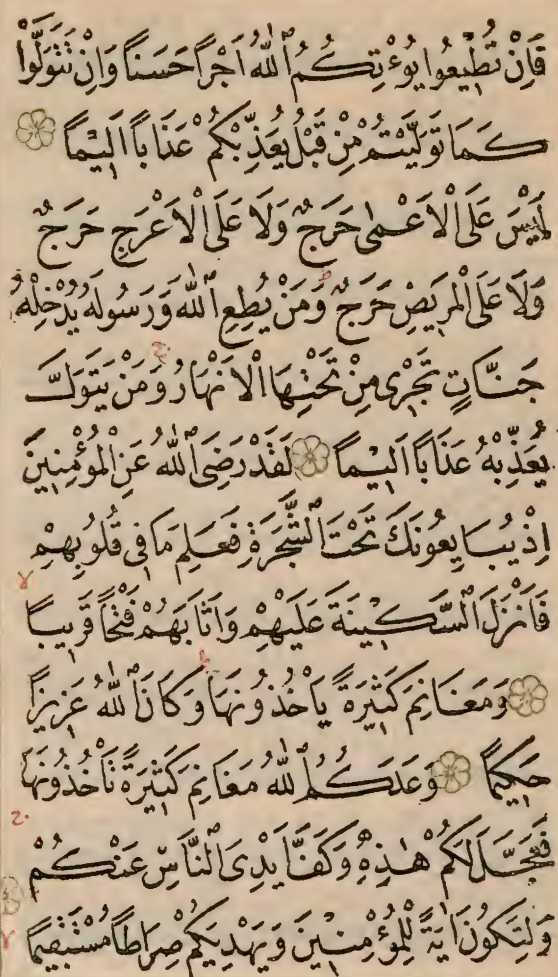 فَاِنْ تُطٖيعُوا يُؤْتِكُمُ ٱللّٰهُ اَجْرًا حَسَنًا وَاِنْ تَتَوَلَّوْا
كَمَا تَوَلَّيْتُمْ مِنْ قَبْلُ يُعَذِّبْكُمْ عَذَابًا اَلٖيمًا
لَيْسَ عَلَى الْاَعْمٰى حَرَجٌ وَلَا عَلَى الْاَعْرَجِ حَرَجٌ
وَلَا عَلَى الْمَرٖيضِ حَرَجٌ وَمَنْ يُطِعِ ٱللّٰهَ وَرَسُولَهُ يُدْخِلْهُ
جَنَّاتٍ تَجْرٖى مِنْ تَحْتِهَا الْاَنْهَارُ وَمَنْ يَتَوَلَّ
يُعَذِّبْهُ عَذَابًا اَلٖيمًا لَقَدْ رَضِىَ ٱللّٰهُ عَنِ الْمُؤْمِنٖينَ
اِذْ يُبَايِعُونَكَ تَحْتَ ٱلشَّجَرَةِ فَعَلِمَ مَا فٖى قُلُوبِهِمْ
فَاَنْزَلَ ٱلسَّكٖينَةَ عَلَيْهِمْ وَاَثَابَهُمْ فَتْحًا قَرٖيبًا
وَمَغَانِمَ كَثٖيرَةً يَاْخُذُونَهَا وَكَانَ ٱللّٰهُ عَزٖيزًا
حَكٖيمًا وَعَدَكُمُ ٱللّٰهُ مَغَانِمَ كَثٖيرَةً تَاْخُذُونَهَا
فَعَجَّلَ لَكُمْ هٰذِهٖ وَكَفَّ اَيْدِىَ ٱلنَّاسِ عَنْكُمْ
وَلِتَكُونَ اٰيَةً لِلْمُؤْمِنٖينَ وَيَهْدِيَكُمْ صِرَاطًا مُسْتَقٖيمًا